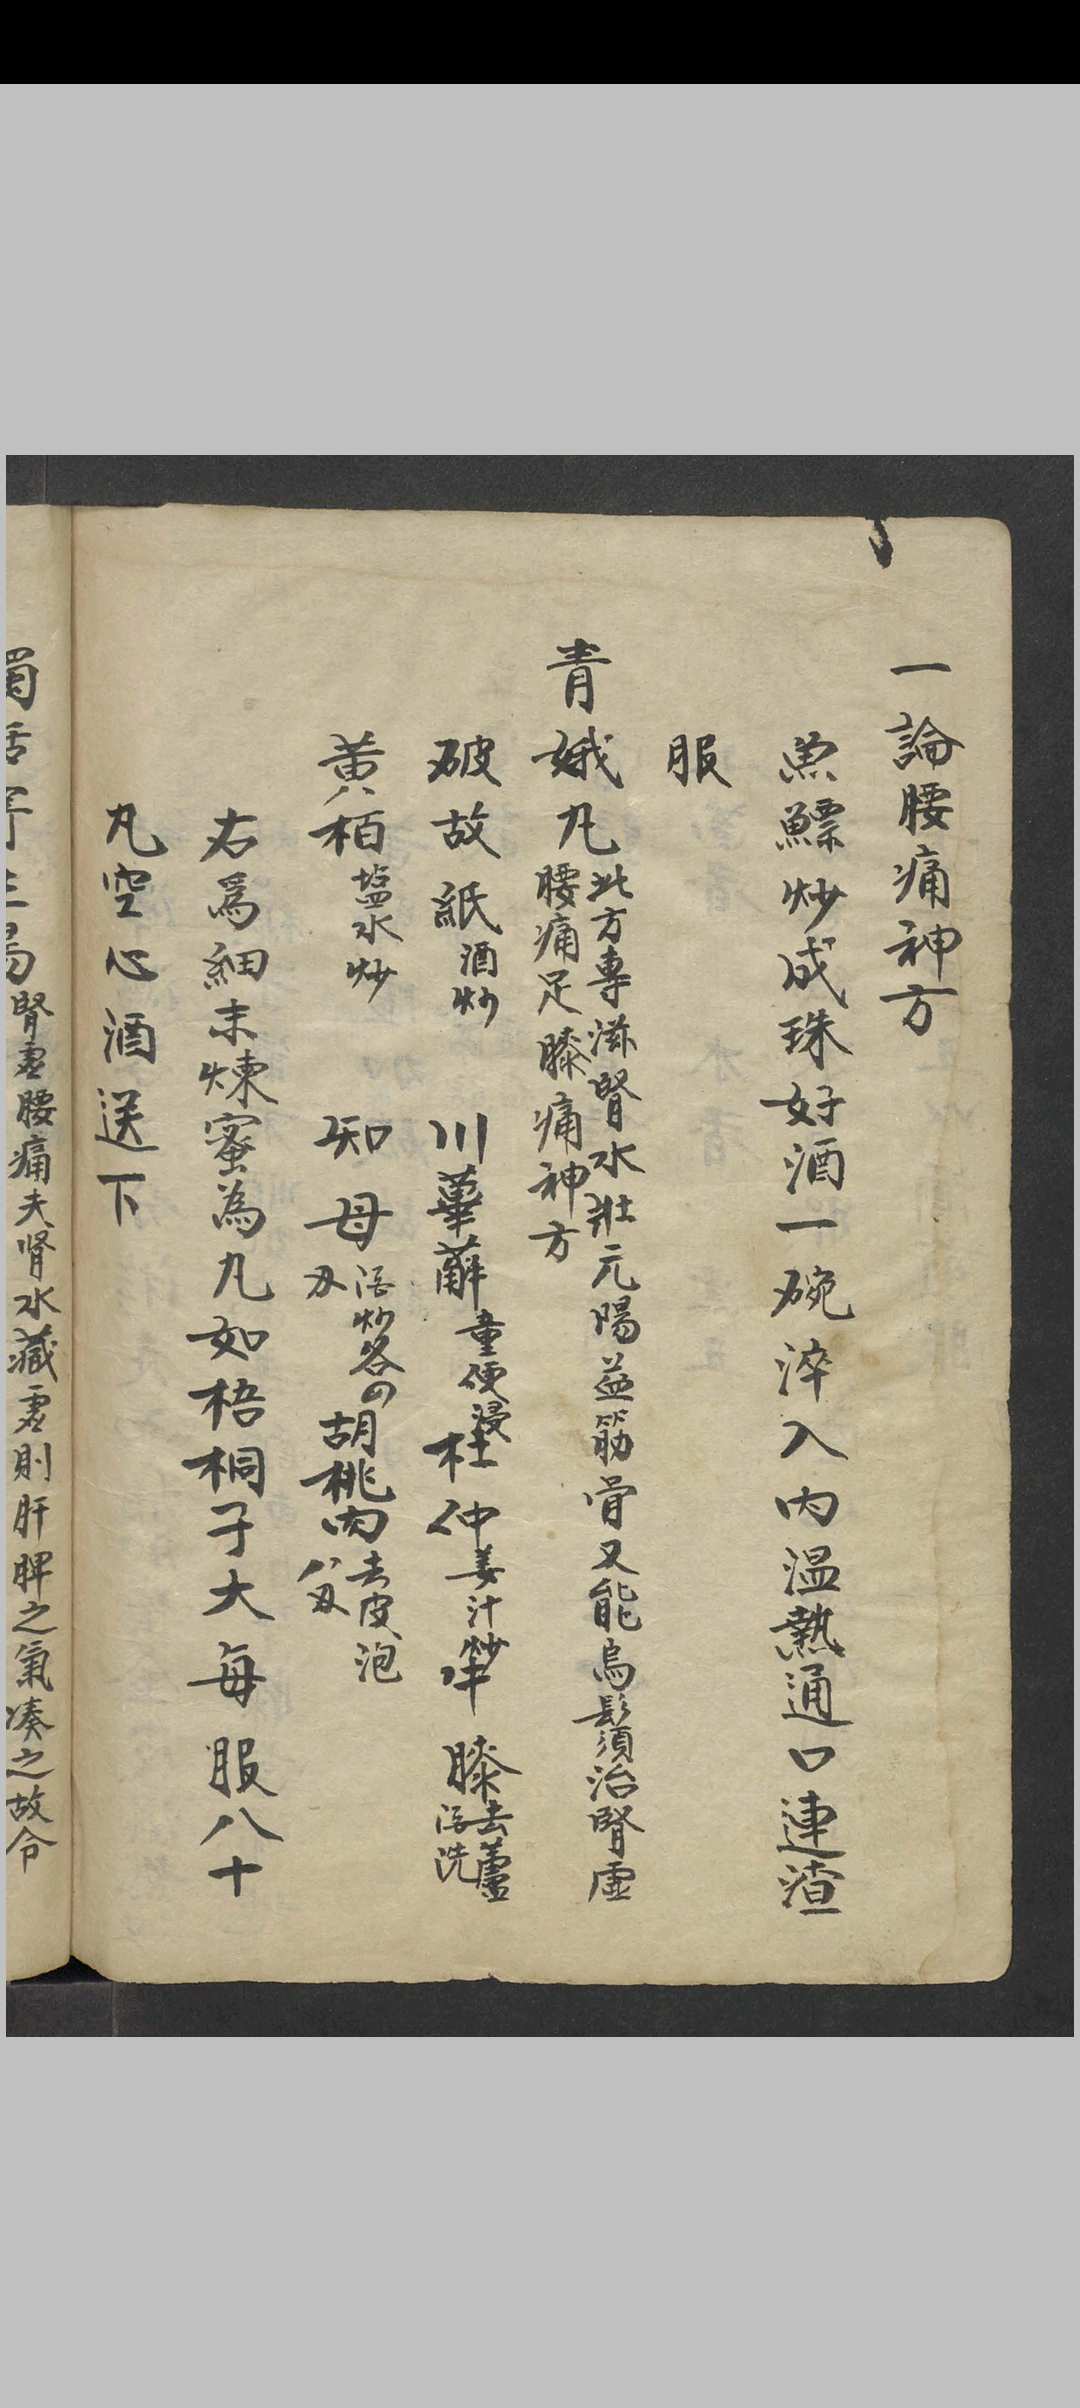 一論腰痛神方
魚鰾炒成珠好酒一碗淬入内温熱通口連渣
服
青娥丸此方專滋腎水壯元陽益筋骨又能烏鬚須治腎虛
腰痛足膝痛神方
破故紙酒炒 川萆薢童便浸杜仲姜汁炒牛膝去蘆
酒洗
黄柏塩水炒 知母酒炒各四
刄胡桃肉去皮泡
八刄
右爲細末煉蜜為丸如梧桐子大每服八十
丸空心酒送下
腎虛腰痛夫腎水藏虛則肝脾之氣凑之故令